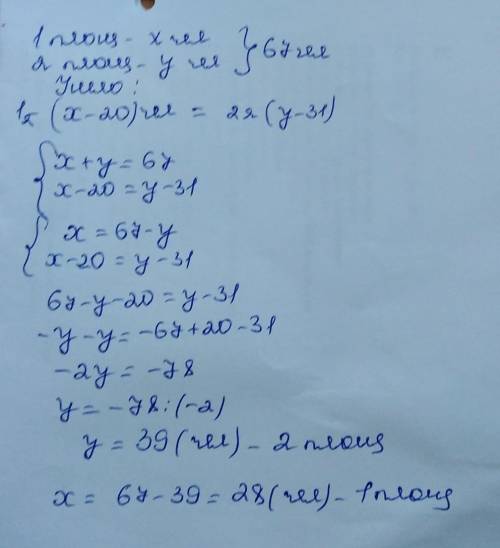 1 площ - x чел } 67 чел
2 площ - y чел
Ушло:
1п (x-20) чел = 2п (y-31)
x+y=67
x-20=y-31
x=67-y
x-20=y-31
67-y-20=y-31
-y-y=-67+20-31
-2y=-78
y=-78:(-2)
y=39(чел)-2 площ
x=67-39=28(чел)-1 площ